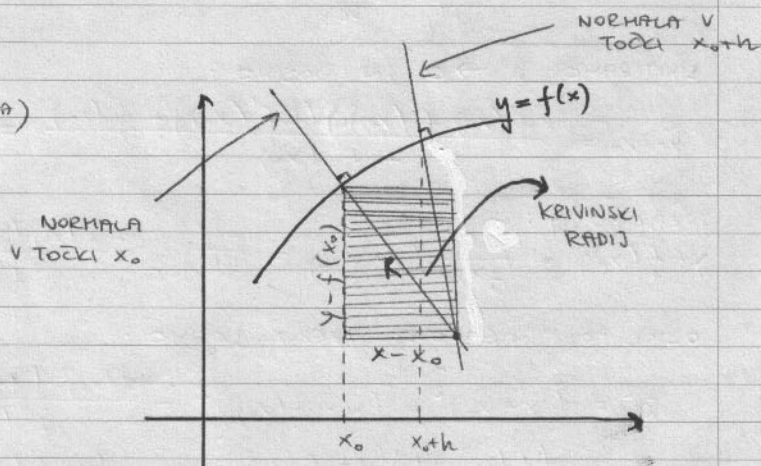 NORMALA V
TOČKI x₀+h
A)
y = f(x)
NORMALA
V TOČKI x₀
KRIVINSKI
RADIJ
R
y - f(x₀)
x - x₀
x₀
x₀+h